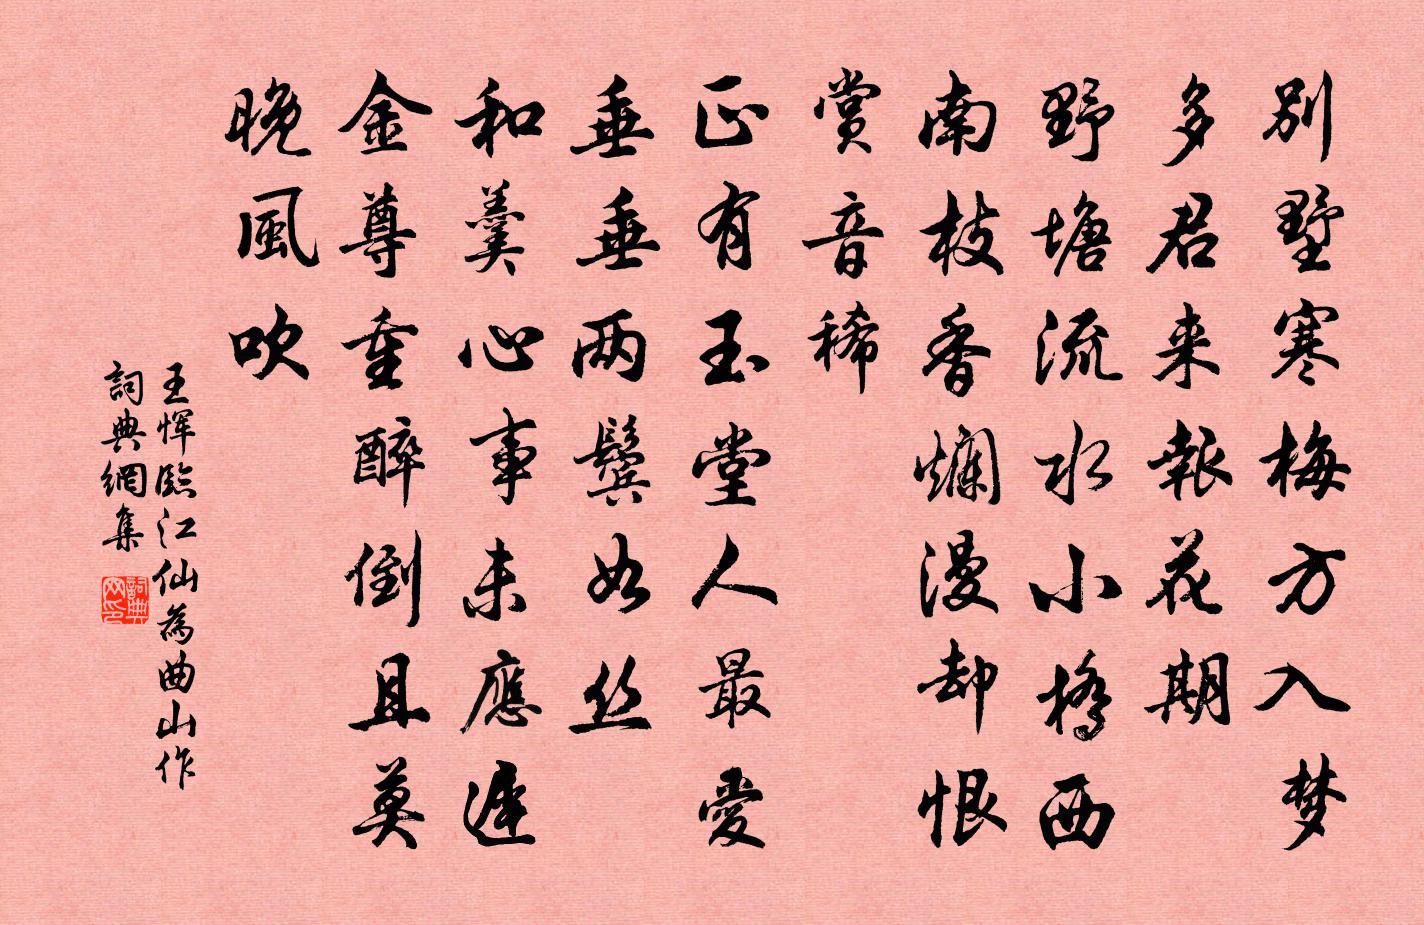 别墅寒梅方入梦
多君来報花期
野塘流水小橋西
南枝香爛漫却恨
賞音稀
正有玉堂人最愛
垂垂两鬢如丝
和羹心事未應遲
金尊重醉倒且莫
晚風吹
王恽臨江仙為曲山作
詞典網集
詞典网印